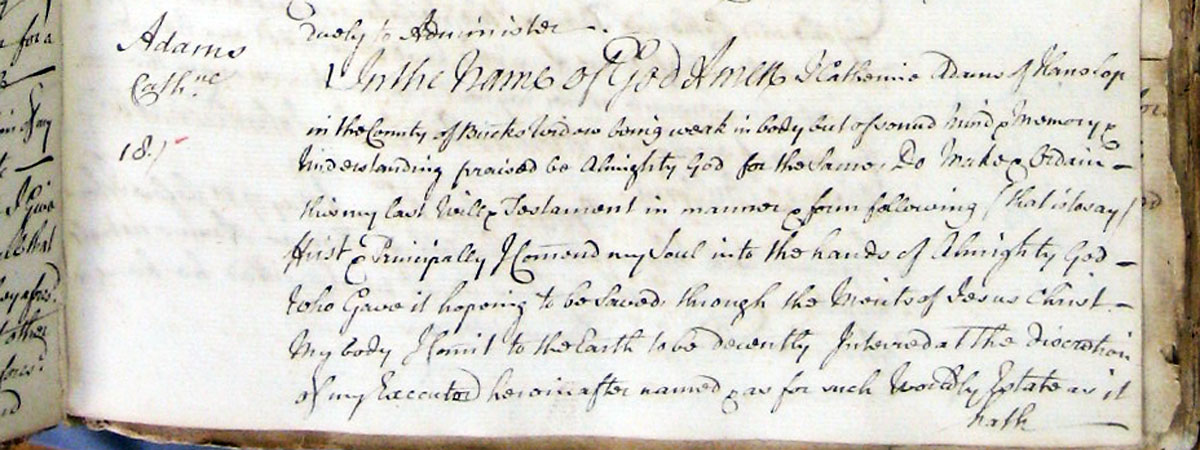 duely to Administer.
Adams
Cath:ne
18:/
In the Name of God Amen I Catherine Adams of Hanslop
in the County of Bucks Widow being weak in body but of sound Mind & Memory &
Understanding praised be Almighty God for the Same; Do Make & Ordain –
this my last Will & Testament in manner & form following (that is to say)
First & Principally I Comend my Soul into the hands of Almighty God –
Who Gave it hopeing to be Saved through the Merits of Jesus Christ –
My body I Comit to the Earth to be decently Interred at the discretion
of my Executor hereinafter named & as for such Worldly Estate as it
hath